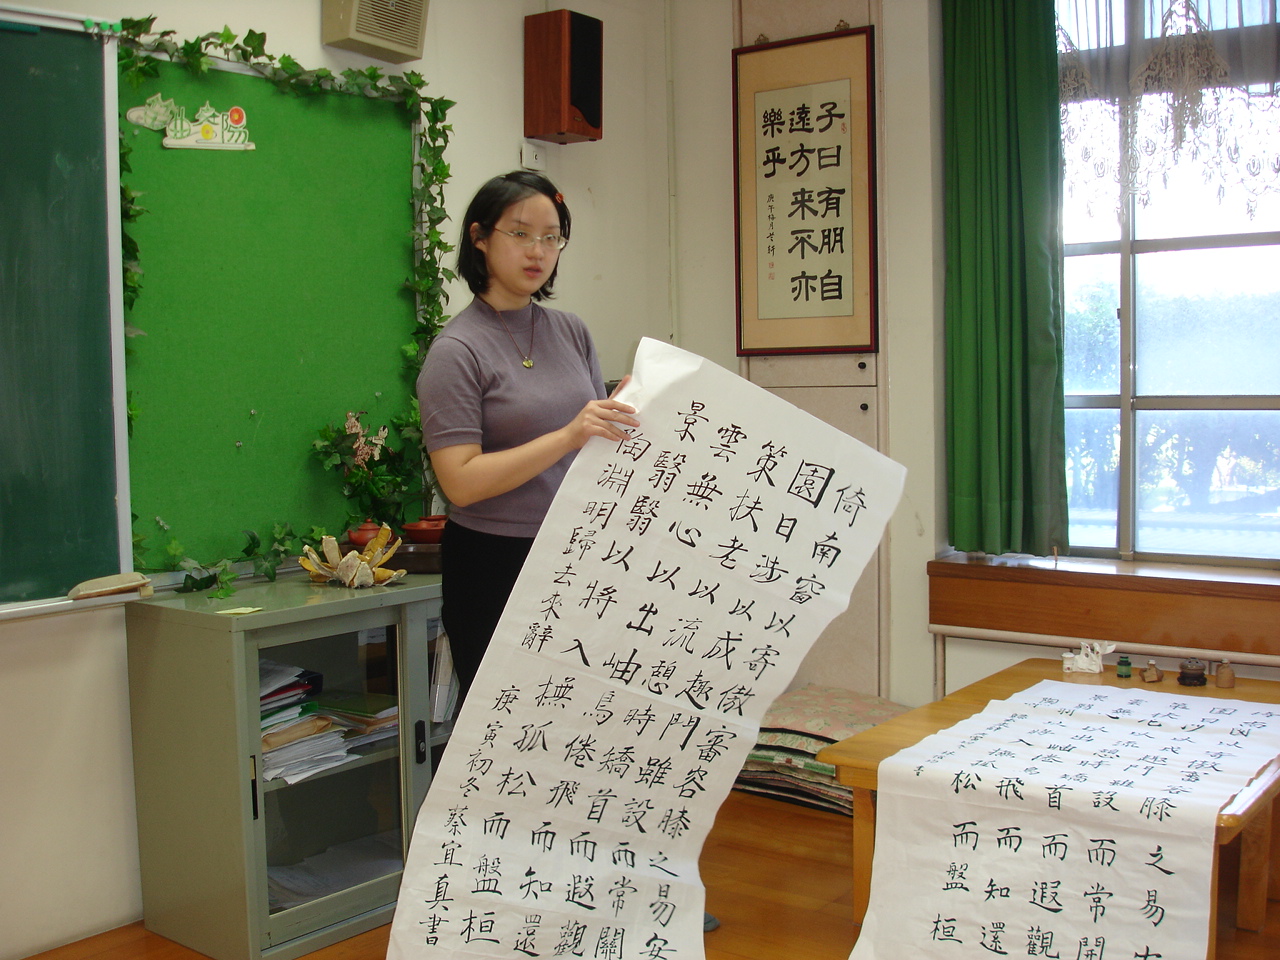 子曰有朋自
遠方來不亦
樂乎
倚南窗以寄傲審容膝之易安
園日涉以成趣門雖設而常關
策扶老以流憩時矯首而遐觀
雲無心以出岫鳥倦飛而知還
景翳翳以將入撫孤松而盤桓
陶淵明歸去來辭 庚寅初冬 蔡宜真書
膝之易
設而常開
首而遐觀
飛而知還
松而盤桓